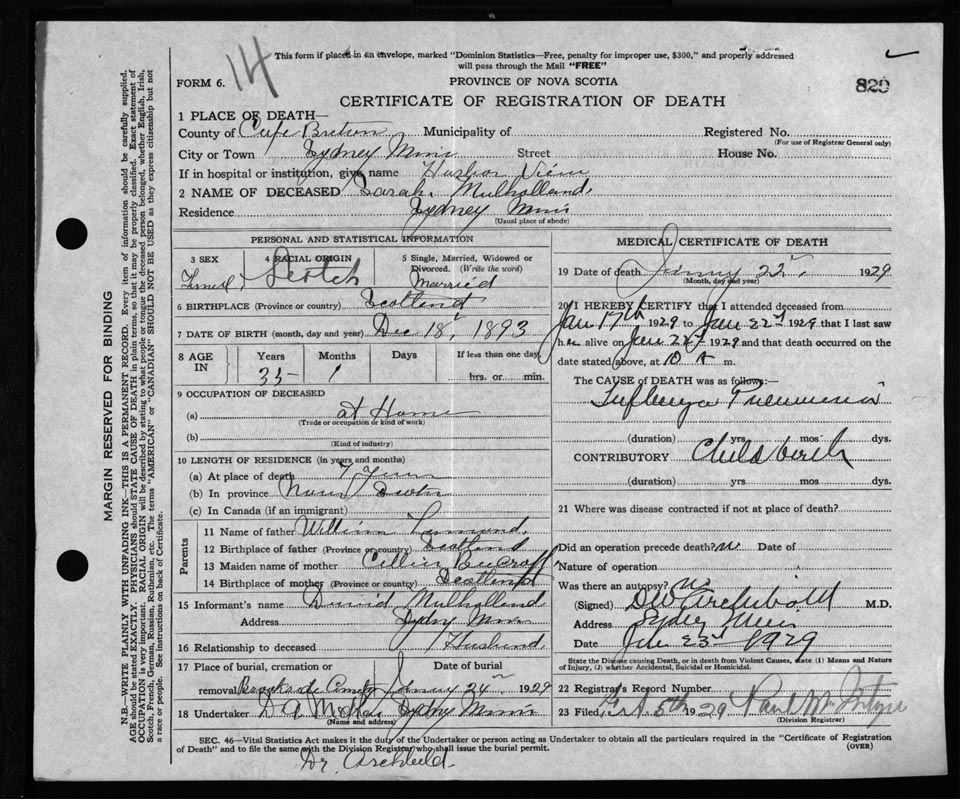 14
This form if placed in an envelope, marked "Dominion Statistics—Free, penalty for improper use, $300," and properly addressed
will pass through the Mail "FREE"
FORM 6. PROVINCE OF NOVA SCOTIA 829
CERTIFICATE OF REGISTRATION OF DEATH
1 PLACE OF DEATH—
County of Cape Breton Municipality of Registered No.
(For use of Registrar General only)
City or Town Sydney Mines Street House No.
If in hospital or institution, give name Harbor View
2 NAME OF DECEASED Sarah Mulholland
Residence Sydney Mines
(Usual place of abode)
PERSONAL AND STATISTICAL INFORMATION
3 SEX Female
4 RACIAL ORIGIN Scotch
5 Single, Married, Widowed or Divorced. (Write the word) Married
6 BIRTHPLACE (Province or country) Scotland
7 DATE OF BIRTH (month, day and year) Dec 18, 1893
8 AGE IN Years Months Days If less than one day,
35 1 hrs. or min.
9 OCCUPATION OF DECEASED
(a) at Home
(Trade or occupation or kind of work)
(b)
(Kind of industry)
10 LENGTH OF RESIDENCE (in years and months)
(a) At place of death 7 years
(b) In province Nova Scotia
(c) In Canada (if an immigrant)
Parents
11 Name of father William Lamond
12 Birthplace of father (Province or country) Scotland
13 Maiden name of mother
14 Birthplace of mother (Province or country) Scotland
15 Informant's name David Mulholland
Address Sydney Mines
16 Relationship to deceased Husband
17 Place of burial, cremation or Date of burial
removal Brookside Cemetery January 24 1929
18 Undertaker D A Sydney Mines
(Name and address)
MEDICAL CERTIFICATE OF DEATH
19 Date of death January 22, 1929
(Month, day and year)
20 I HEREBY CERTIFY that I attended deceased from
Jan 17th 1929 to Jan 22nd 1929 that I last saw
her alive on Jan 22nd 1929 and that death occurred on the
date stated above, at 10 A m.
The CAUSE OF DEATH was as follows:—
Influenza Pneumonia
(duration) yrs mos dys.
CONTRIBUTORY Childbirth
(duration) yrs. mos. dys.
21 Where was disease contracted if not at place of death?
Did an operation precede death? no Date of
Nature of operation
Was there an autopsy? no
(Signed) D W Archibald M.D.
Address Sydney Mines
Date Jan 23rd 1929
State the Disease causing Death, or in death from Violent Causes, state (1) Means and Nature
of Injury, (2) whether Accidental, Suicidal or Homicidal.
22 Registrar's Record Number
23 Filed Feb 5th 1929 Paul McIntyre
(Division Registrar)
SEC. 46—Vital Statistics Act makes it the duty of the Undertaker or person acting as Undertaker to obtain all the particulars required in the "Certificate of Registration
of Death" and to file the same with the Division Registrar who shall issue the burial permit. (OVER)
Dr. Archibald
MARGIN RESERVED FOR BINDING
N.B.—WRITE PLAINLY WITH UNFADING INK—THIS IS A PERMANENT RECORD. Every item of information should be carefully supplied.
AGE should be stated EXACTLY. PHYSICIANS should STATE CAUSE OF DEATH in plain terms, so that it may be properly classified. Exact statement of
OCCUPATION is very important. RACIAL ORIGIN will be described by stating to what people or tongue the deceased person belonged, whether English, Irish,
Scotch, French, German, Russian, Ruthenian, etc. The terms "AMERICAN" or "CANADIAN" SHOULD NOT BE USED as they express citizenship but not
a race or people. See instructions on back of Certificate.